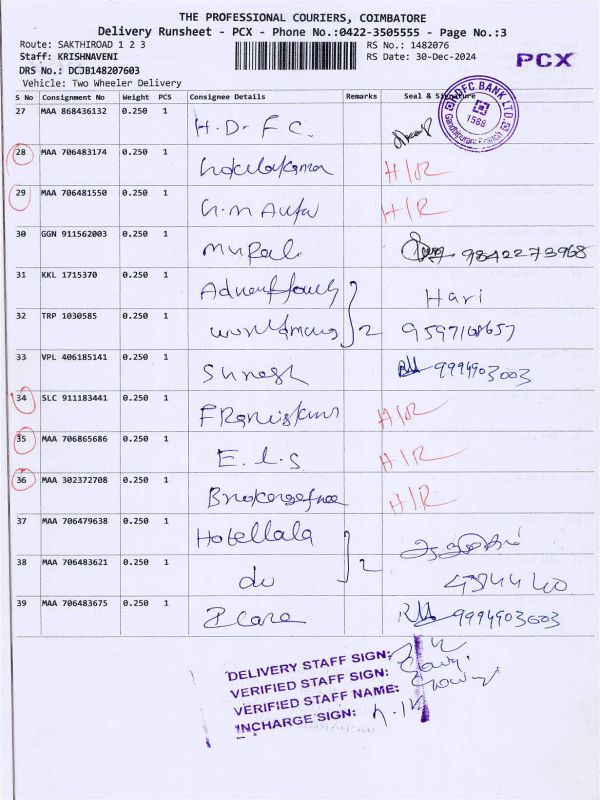 THE PROFESSIONAL COURIERS, COIMBATORE
Delivery Runsheet - PCX - Phone No.:0422-3505555 - Page No.:3
Route: SAKTHIROAD 1 2 3 RS No.: 1482076
Staff: KRISHNAVENI RS Date: 30-Dec-2024
PCX
DRS No.: DCJB148207603
Vehicle: Two Wheeler Delivery
S No Consignment No Weight PCS Consignee Details Remarks Seal & Signature
HDFC BANK LTD
1588
Gandhipuram Branch
27 MAA 868436132 0.250 1 H.D.F.C.
28 MAA 706483174 0.250 1 H/R
29 MAA 706481550 0.250 1 H/R
30 GGN 911562003 0.250 1 Murali 9842273968
31 KKL 1715370 0.250 1 Hari
32 TRP 1030585 0.250 1 2 9597168657
33 VPL 406185141 0.250 1 Suresh 9994903003
34 SLC 911183441 0.250 1 H/R
35 MAA 706865686 0.250 1 E.L.S H/R
36 MAA 302372708 0.250 1 H/R
37 MAA 706479638 0.250 1 Hotellala
38 MAA 706483621 0.250 1 do 2
39 MAA 706483675 0.250 1 9994903003
DELIVERY STAFF SIGN:
VERIFIED STAFF SIGN:
VERIFIED STAFF NAME:
INCHARGE SIGN: